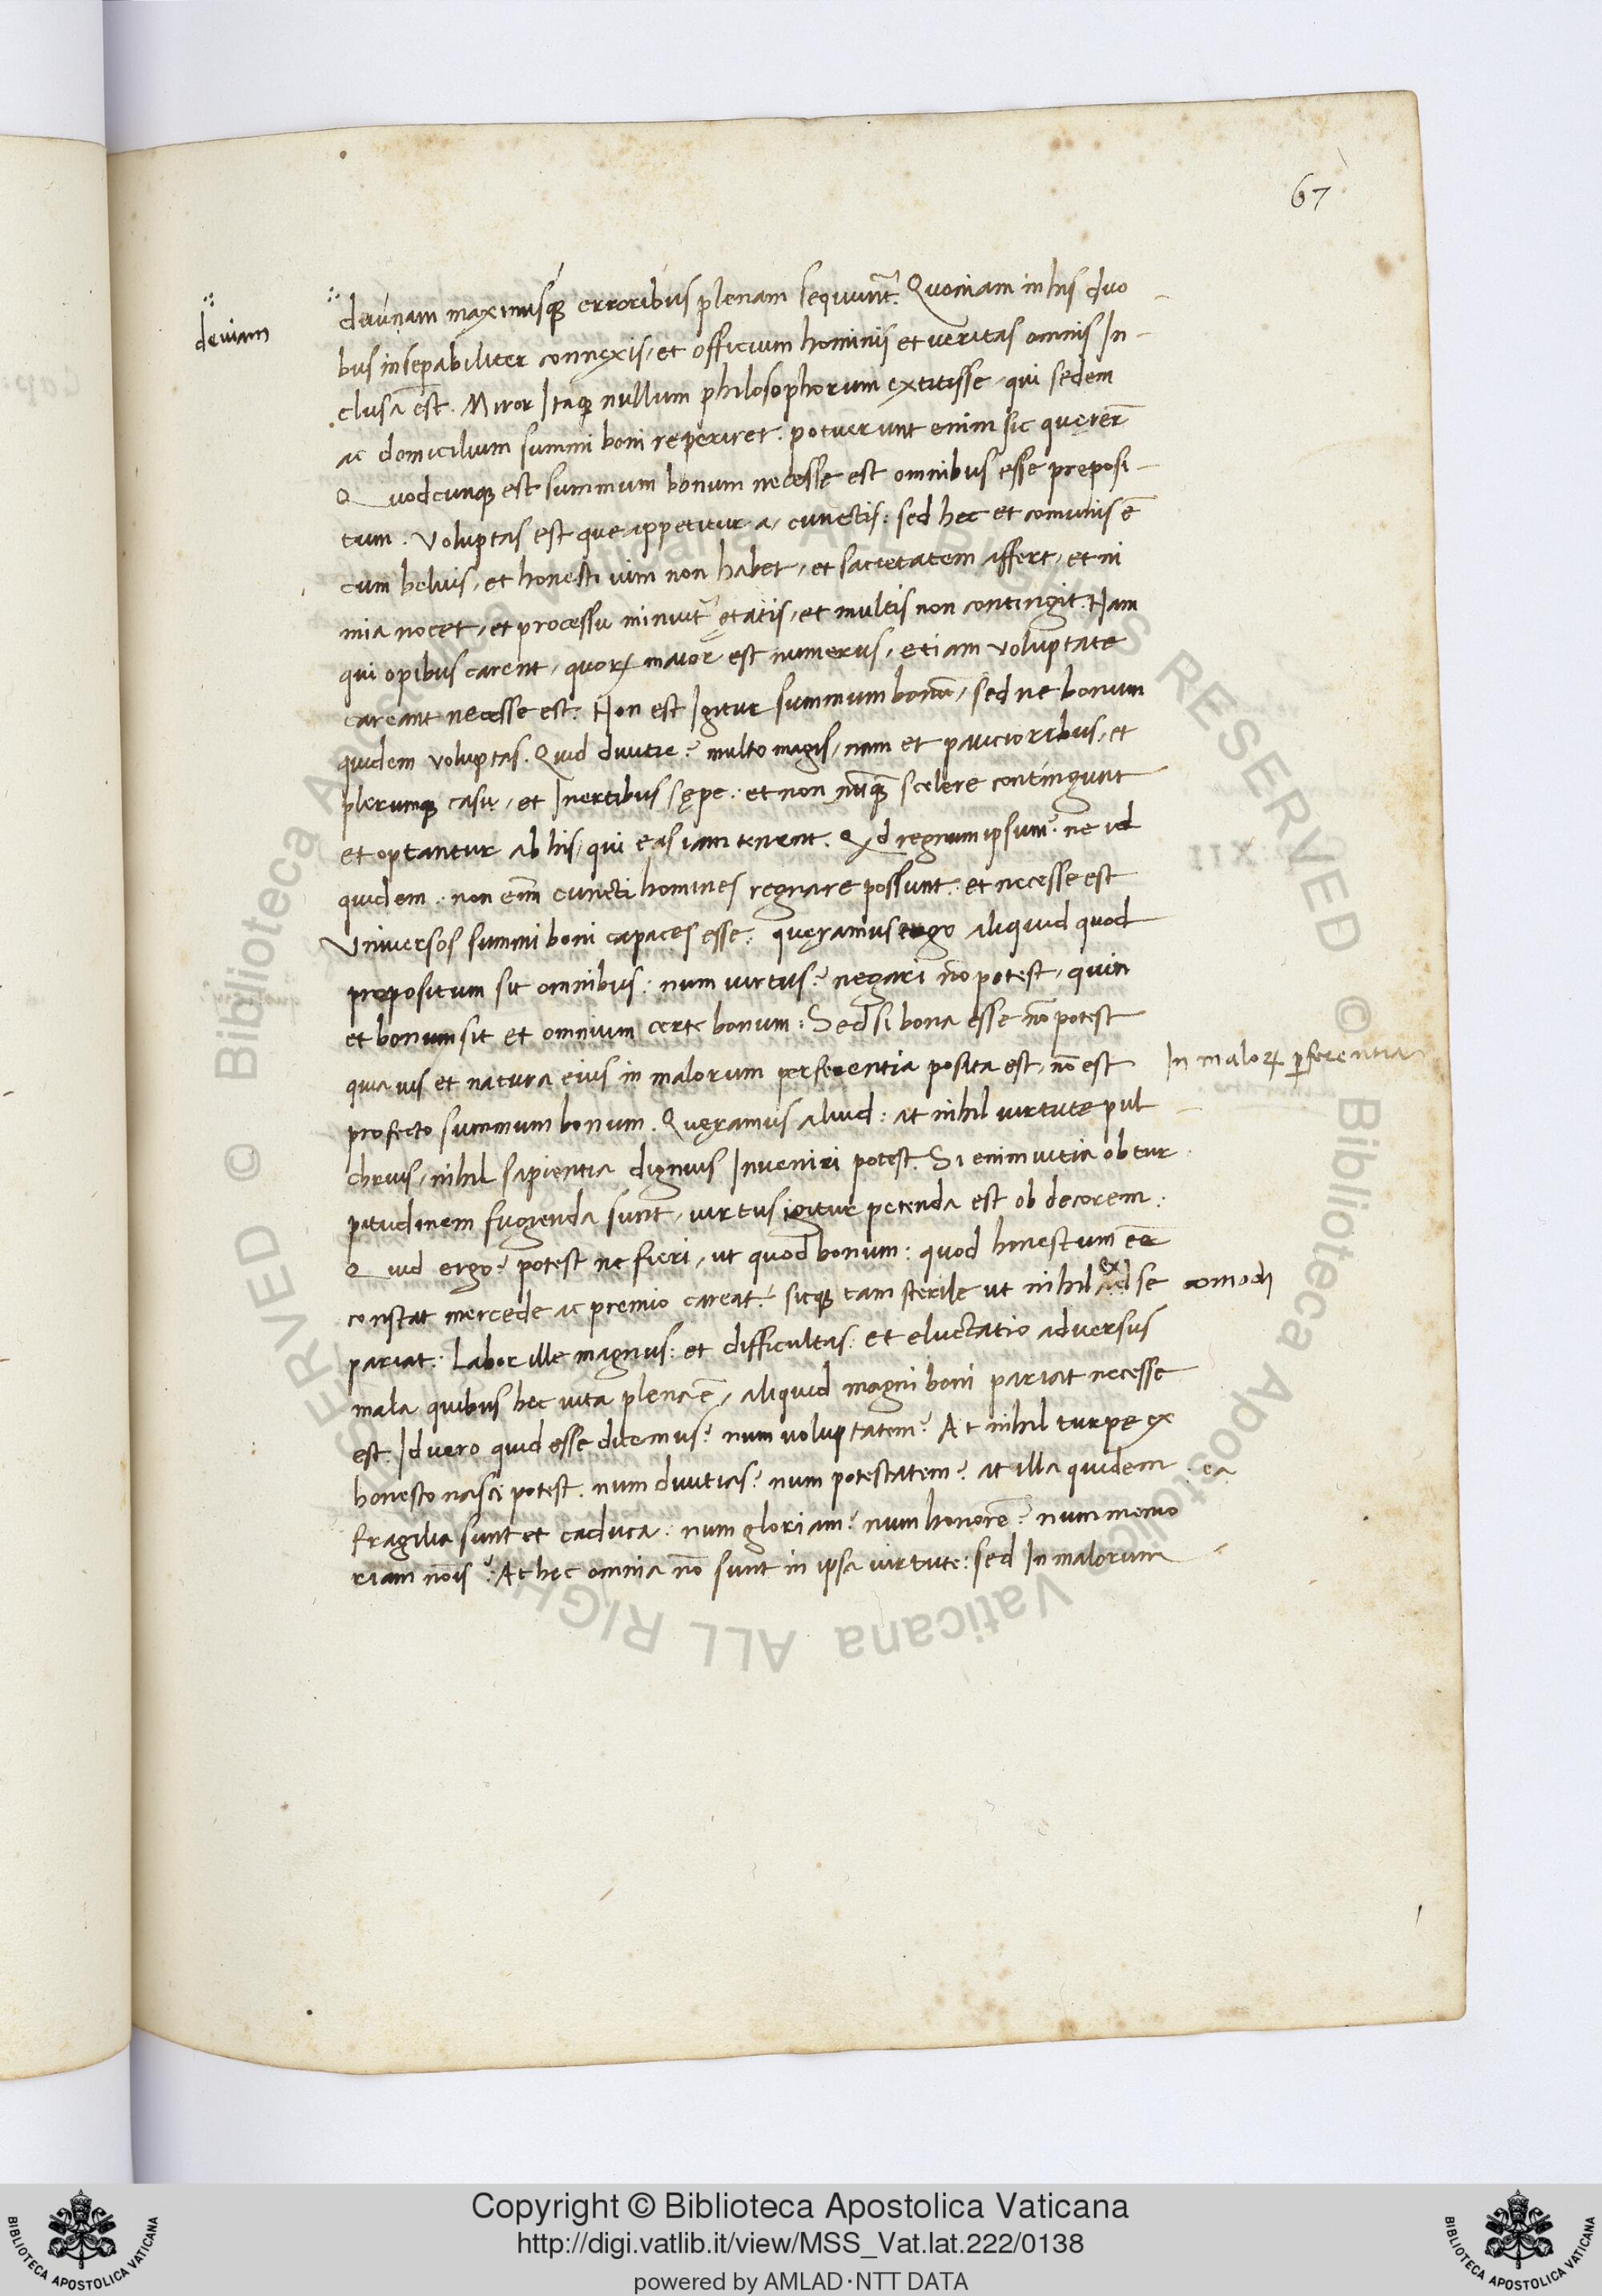 67
deuiam
diuinam maximisq́ꝫ erroribus plenam sequunt᷑. Quoniam in his duo
bus inseparabiliter connexis, et officium hominis et ueritas omnis In-
clusa est. Miror Itaqꝫ nullum philosophorum extitisse, qui sedem
ac domicilium summi boni reperiret. potuerunt enim sic querer̄
Quodcunqꝫ est summum bonum necesse est omnibus esse preposi-
tum. Voluptas est que appetitur a, cunctis: sed hec et comunis ē
cum beluis, et honesti uim non habet, et satietatem affert, et ni
mia nocet, et processu minuit᷑ ętatis, et multis non contingit. Nam
qui opibus carent, quoꝝ maior est numerus, etiam voluptate
careant necesse est. Non est Igitur summum bonū, sed ne bonum
quidem voluptas. Quid diuitie? multo magis, nam et paucioribus, et
plerumqꝫ casu, et Inertibus sępe. et non nūqꝫ scelere contingunt
et optantur ab his, qui eas iam tenent. Qd regnum ipsum? ne id
quidem. non eīm cuncti homines regnare possunt. et necesse est
Vniuersos summi boni capaces esse. quęramus ergo aliquid quod
propositum sit omnibus. num uirtus? negari nō potest, quin
et bonum sit et omnium certe bonum: Sed si bona esse nō potest
quia uis et natura eius in malorum perferentia posita est, nō est
In maloꝝ ꝑferentia
profecto summum bonum. Quęramus aliud: at nihil uirtute pul
chrius, nihil sapientia dignius Inueniri potest. Si enim uitia ob tur
pitudinem fugienda sunt, uirtus igitur petenda est ob decorem.
Quid ergo? potest ne fieri, ut quod bonum: quod honestum eē
constat mercede ac premio careat? sitqꝫ tam sterile ut nihil ex ad se comodi
pariat. Labor ille magnus: et difficultas: et eluctatio aduersus
mala quibus hec uita plena ē, aliquid magni boni pariat necesse
est. Id uero quid esse dicemus? num uoluptatem? At nihil turpe ex
honesto nasci potest. num diuitias? num potestatem? at illa quidem . ea
fragilia sunt et caduca. num gloriam? num honorē? num memo
riam nōis? At hec omnia nō sunt in ipsa uirtute: sed In malorum
Copyright © Biblioteca Apostolica Vaticana
http://digi.vatlib.it/view/MSS_Vat.lat.222/0138
powered by AMLAD·NTT DATA
BIBLIOTECA APOSTOLICA VATICANA
BIBLIOTECA APOSTOLICA VATICANA
© Biblioteca Apostolica Vaticana ALL RIGHTS RESERVED © Biblioteca Apostolica Vaticana ALL RIGHTS RESERVED